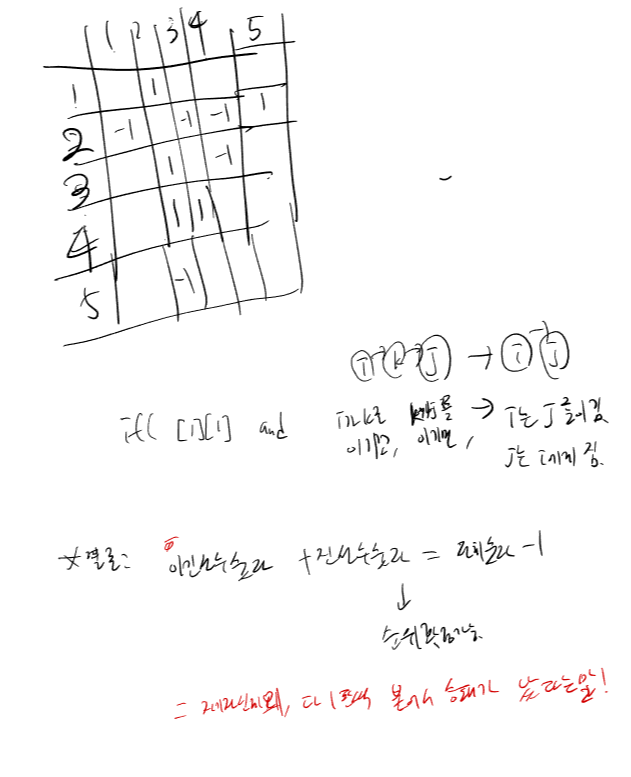 1 2 3 4 5
1 1
2 -1 -1 -1 1
3 1 -1
4 1 1
5 -1
i → k → J → i → J
if( [i][i] and i가 k를 이기고, k가 J를 이기면, → i는 J를 이김
J는 i에게 짐.
* 결론: 이긴선수숫자 + 진선수숫자 = 전체숫자 - 1
↓
순위확정가능.
= 제자신빼, 다 1판씩 붙어서 승패가 났다는말!